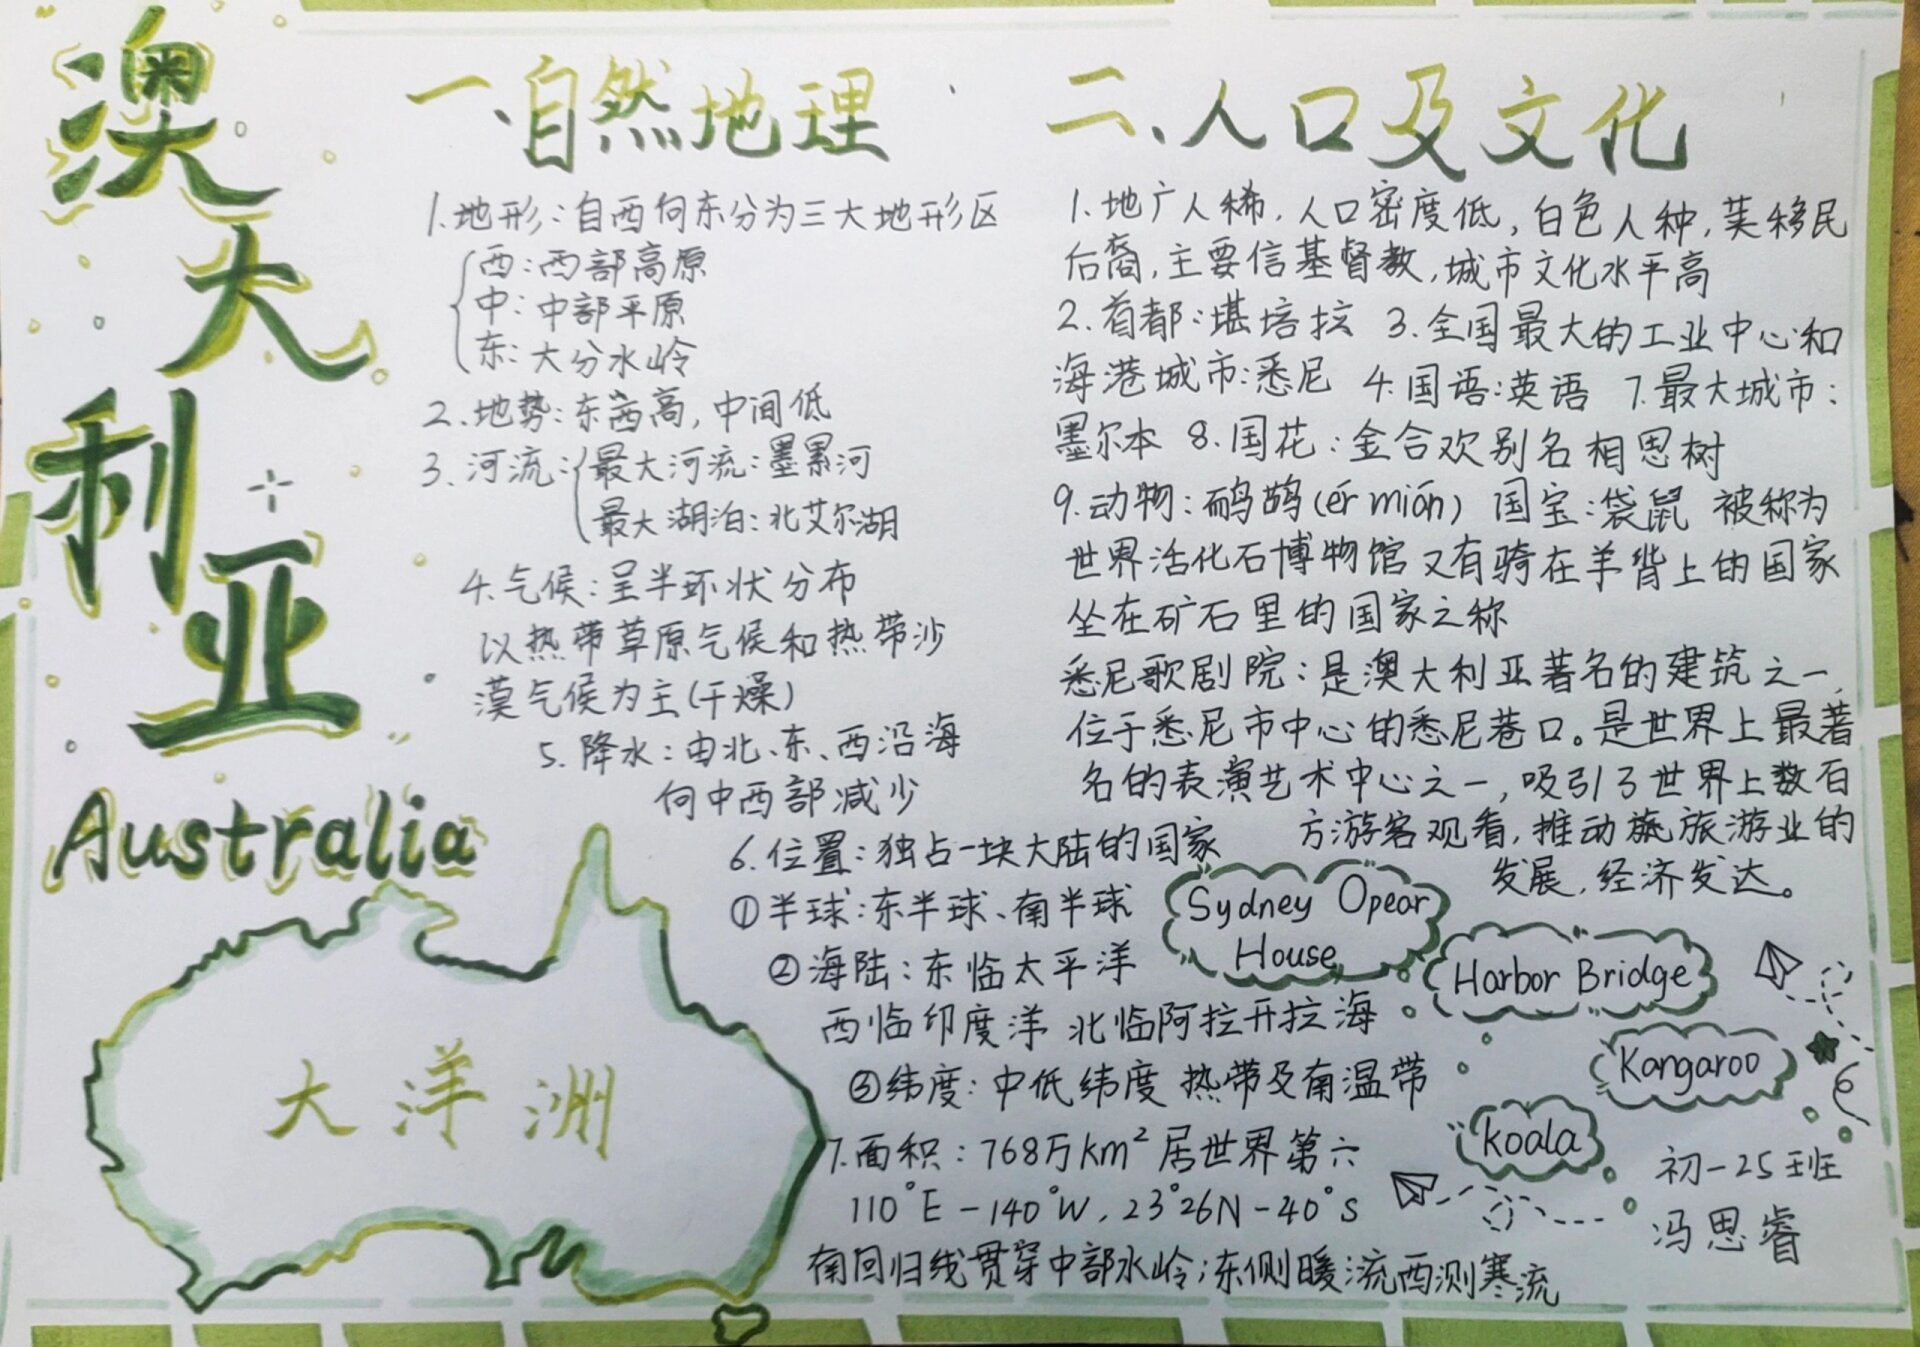 澳大利亚
Australia
大洋洲
一、自然地理
1.地形:自西向东分为三大地形区
西:西部高原
中:中部平原
东:大分水岭
2.地势:东西高,中间低
3.河流:
最大河流:墨累河
最大湖泊:北艾尔湖
4.气候:呈半环状分布
以热带草原气候和热带沙
漠气候为主(干燥)
5.降水:由北、东、西沿海
向中西部减少
6.位置:独占一块大陆的国家
①半球:东半球、南半球
②海陆:东临太平洋
西临印度洋 北临阿拉开拉海
③纬度:中低纬度 热带及南温带
7.面积:768万km²居世界第六
110°E-140°W,23°26N-40°S
南回归线贯穿中部水岭;东侧暖流西测寒流
二、人口及文化
1.地广人稀,人口密度低,白色人种,英移民
后裔,主要信基督教,城市文化水平高
2.首都:堪培拉 3.全国最大的工业中心和
海港城市:悉尼 4.国语:英语 7.最大城市:
墨尔本 8.国花:金合欢别名相思树
9.动物:鸸鹋(ér mián) 国宝:袋鼠 被称为
世界活化石博物馆又有骑在羊背上的国家
坐在矿石里的国家之称
悉尼歌剧院:是澳大利亚著名的建筑之一,
位于悉尼市中心的悉尼巷口。是世界上最著
名的表演艺术中心之一,吸引了世界上数百
万游客观看,推动旅游业的
发展,经济发达。
Sydney Opear
House
Harbor Bridge
Kangaroo
koala
初一25班
冯思睿